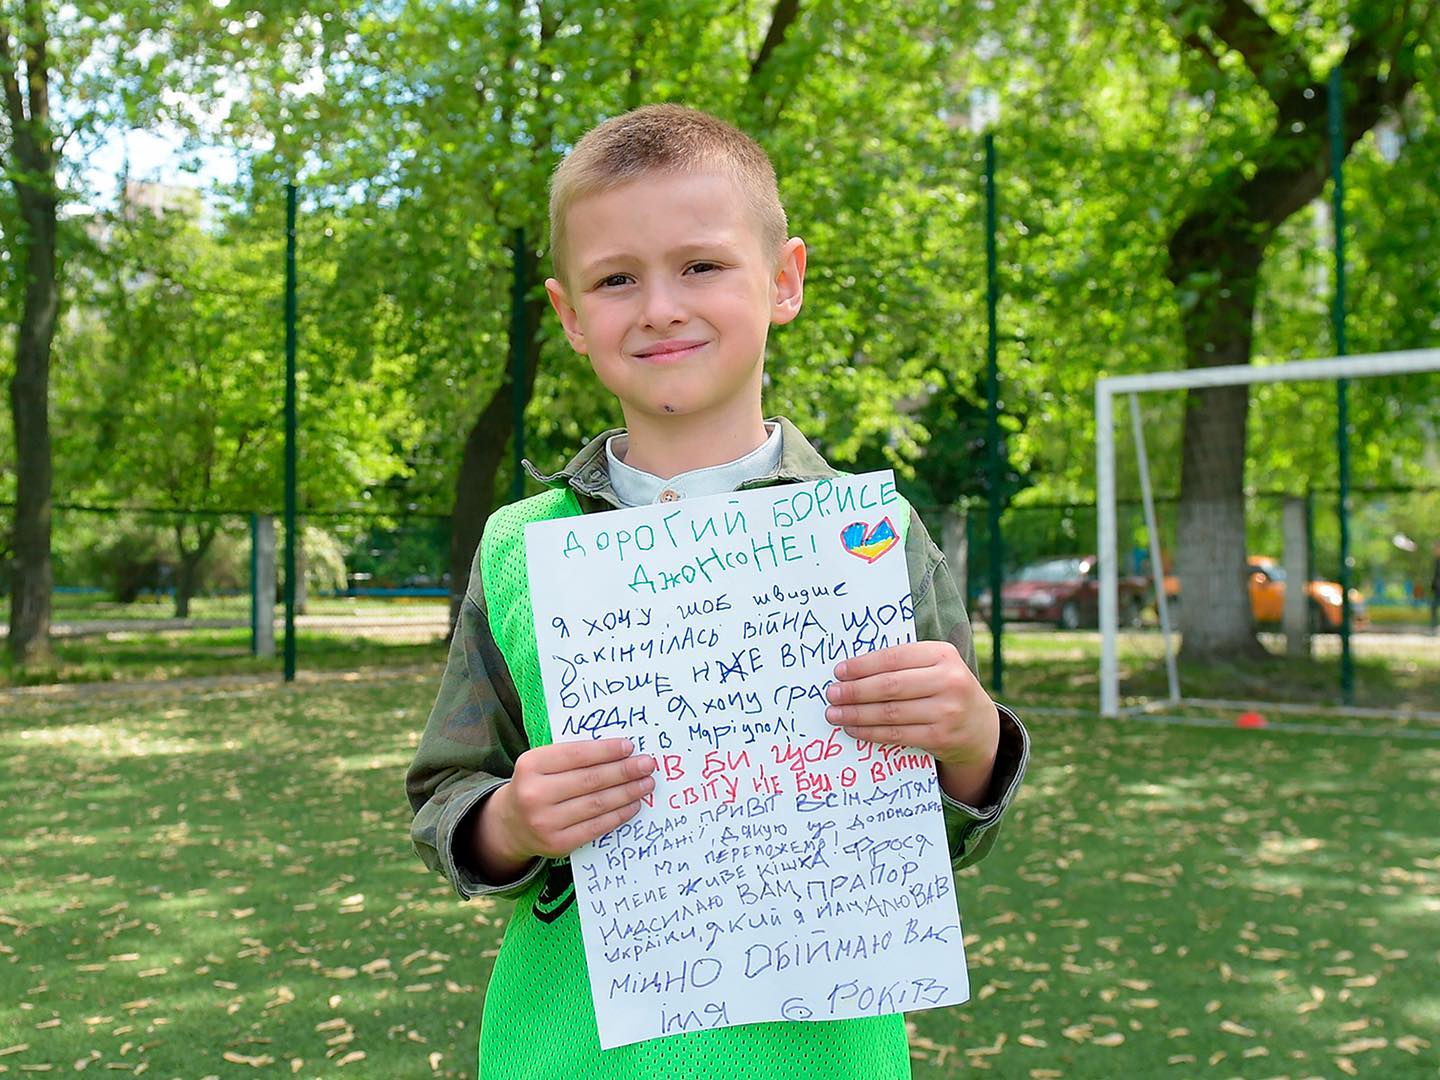 ДОРОГИЙ БОРИСЕ
ДЖОНСОНЕ!
Я ХОЧУ, ЩОБ швидше
закінчілась війна, щоб
більше не вмирали
люди. Я хочу
в Маріуполі.
БИ, ЩОБ
СВІТУ НЕ БУЛО ВІЙНИ
ПЕРЕДАЮ ПРИВІТ ВСІМ ДІТЯМ
У БРИТАНІЇ, ДЯКУЮ що допомагаєте
НАМ. МИ ПЕРЕМОЖЕМО!
У МЕНЕ ЖИВЕ КІШКА ФРОСЯ
НАДСИЛАЮ ВАМ, ПРАПОР
УКРАЇНИ, ЯКИЙ Я НАМАЛЮВАВ
МІЦНО ОБІЙМАЮ ВАС
ІЛЛЯ 6 РОКІВ